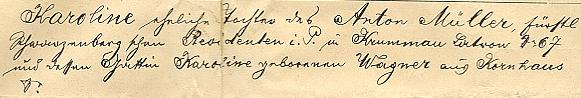 Karoline eheliche Tochter des Anton Müller, fürstl
Schwarzenberg'schen Residenten i. P. in Krummau Latron N: 67
und dessen Gattin Karoline geborenen Wagner aus Kornhaus